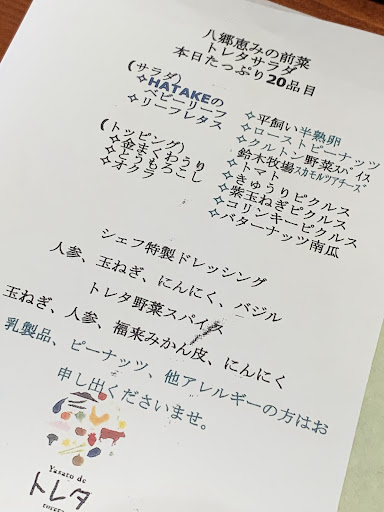 八郷恵みの前菜
トレタサラダ
本日たっぷり20品目
(サラダ)
✧HATAKEの
ベビーリーフ
✧リーフレタス
(トッピング)
✧金まくわうり
✧とうもろこし
✧オクラ
✧平飼い半熟卵
✧ローストピーナッツ
✧クルトン野菜スパイス
鈴木牧場スカモルツアチーズ
✧トマト
✧きゅうりピクルス
✧紫玉ねぎピクルス
✧コリンキーピクルス
✧バターナッツ南瓜
シェフ特製ドレッシング
人参、玉ねぎ、にんにく、バジル
トレタ野菜スパイス
玉ねぎ、人参、福来みかん皮、にんにく
乳製品、ピーナッツ、他アレルギーの方はお
申し出くださいませ。
Yasato de
トレタ